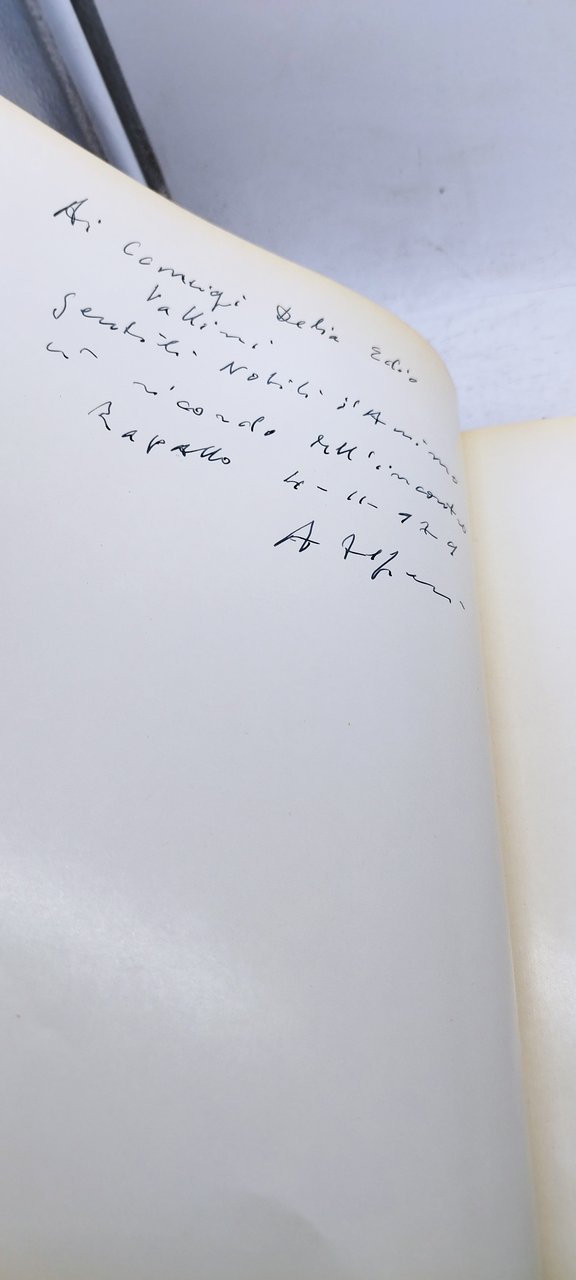 Ai Coniugi Delia Edio
Vallini
Gentili Nobili d'Animo
in ricordo dell'incontro
Rapallo 4-11-179
A